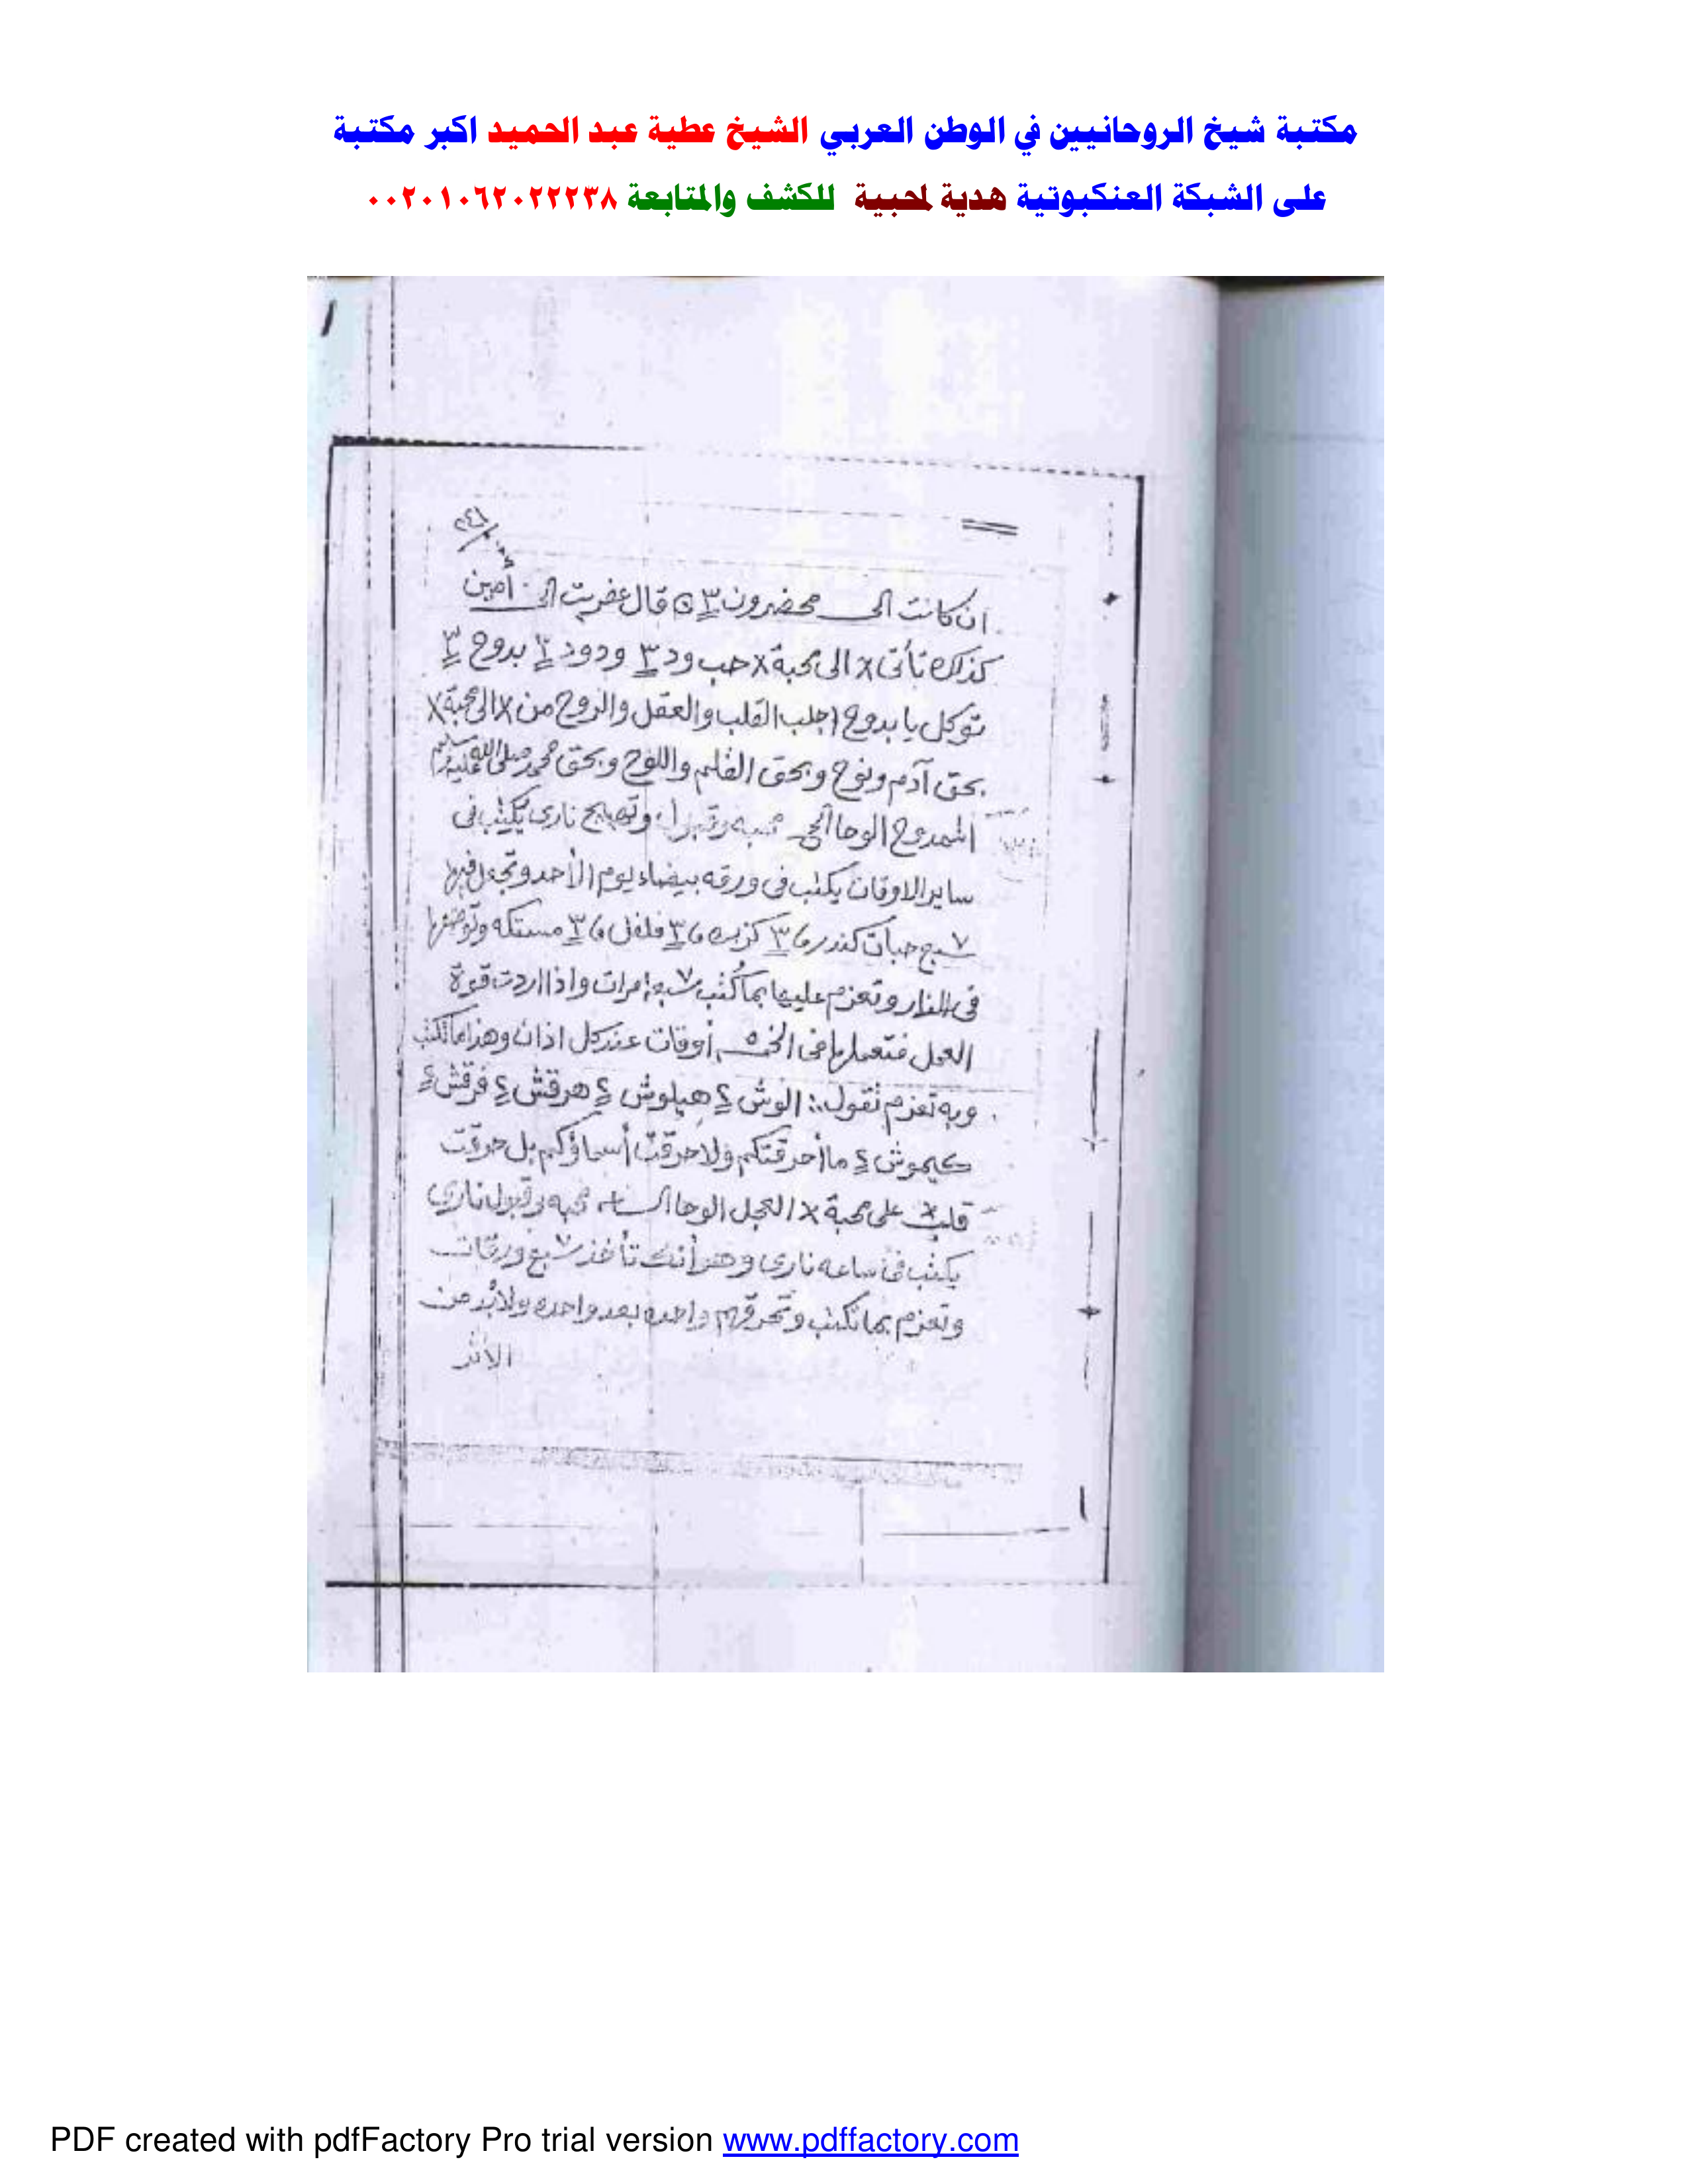 مكتبة شيخ الروحانيين في الوطن العربي الشيخ عطية عبد الحميد اكبر مكتبة
على الشبكة العنكبوتية هدية لمحبية للكشف والمتابعة ٠٠٢٠١٠٦٢٠٢٢٢٣٨
ان كانت الى محضرون ٣ قال عفريت الى أمين
كذلك تأتى x الى محبة x حب ود ٣ ودود ٣ بدوح ٣
توكل يا بدوح اجلب القلب والعقل والروح من x الى محبة x
بحق آدم ونوح وبحق القلم واللوح وبحق محمد صلى الله عليه وسلم
الممدوح الوحا وتهييج نارى يكتب فى
ساير الاوقات يكتب فى ورقه بيضاء يوم الأحد وتجعل فيها
سبع ٧ حبات كندر ٣ كزبره ٣ فلفل ٣ مستكه وتوضعها
فى النار وتعزم عليها بما كُتب سبعة ٧ مرات واذا اردت قوة
العمل فتعملها فى الخمسه أوقات عند كل اذان وهذا ما تكتب
وبه تعزم تقول :: الوش ٤ هيلوش ٤ هرقش ٤ فرقش ٤
كيموش ٤ ما أحرقتكم ولا حرقت أسماؤكم بل حرقت
قلب x على محبة x العجل الوحا محبه وقبول نارى
يكتب فى ساعه نارى وهو أنك تأخذ سبع ٧ ورقات
وتعزم بما تكتب وتحرقهم واحده بعد واحده ولابُد من
الاثر
PDF created with pdfFactory Pro trial version www.pdffactory.com